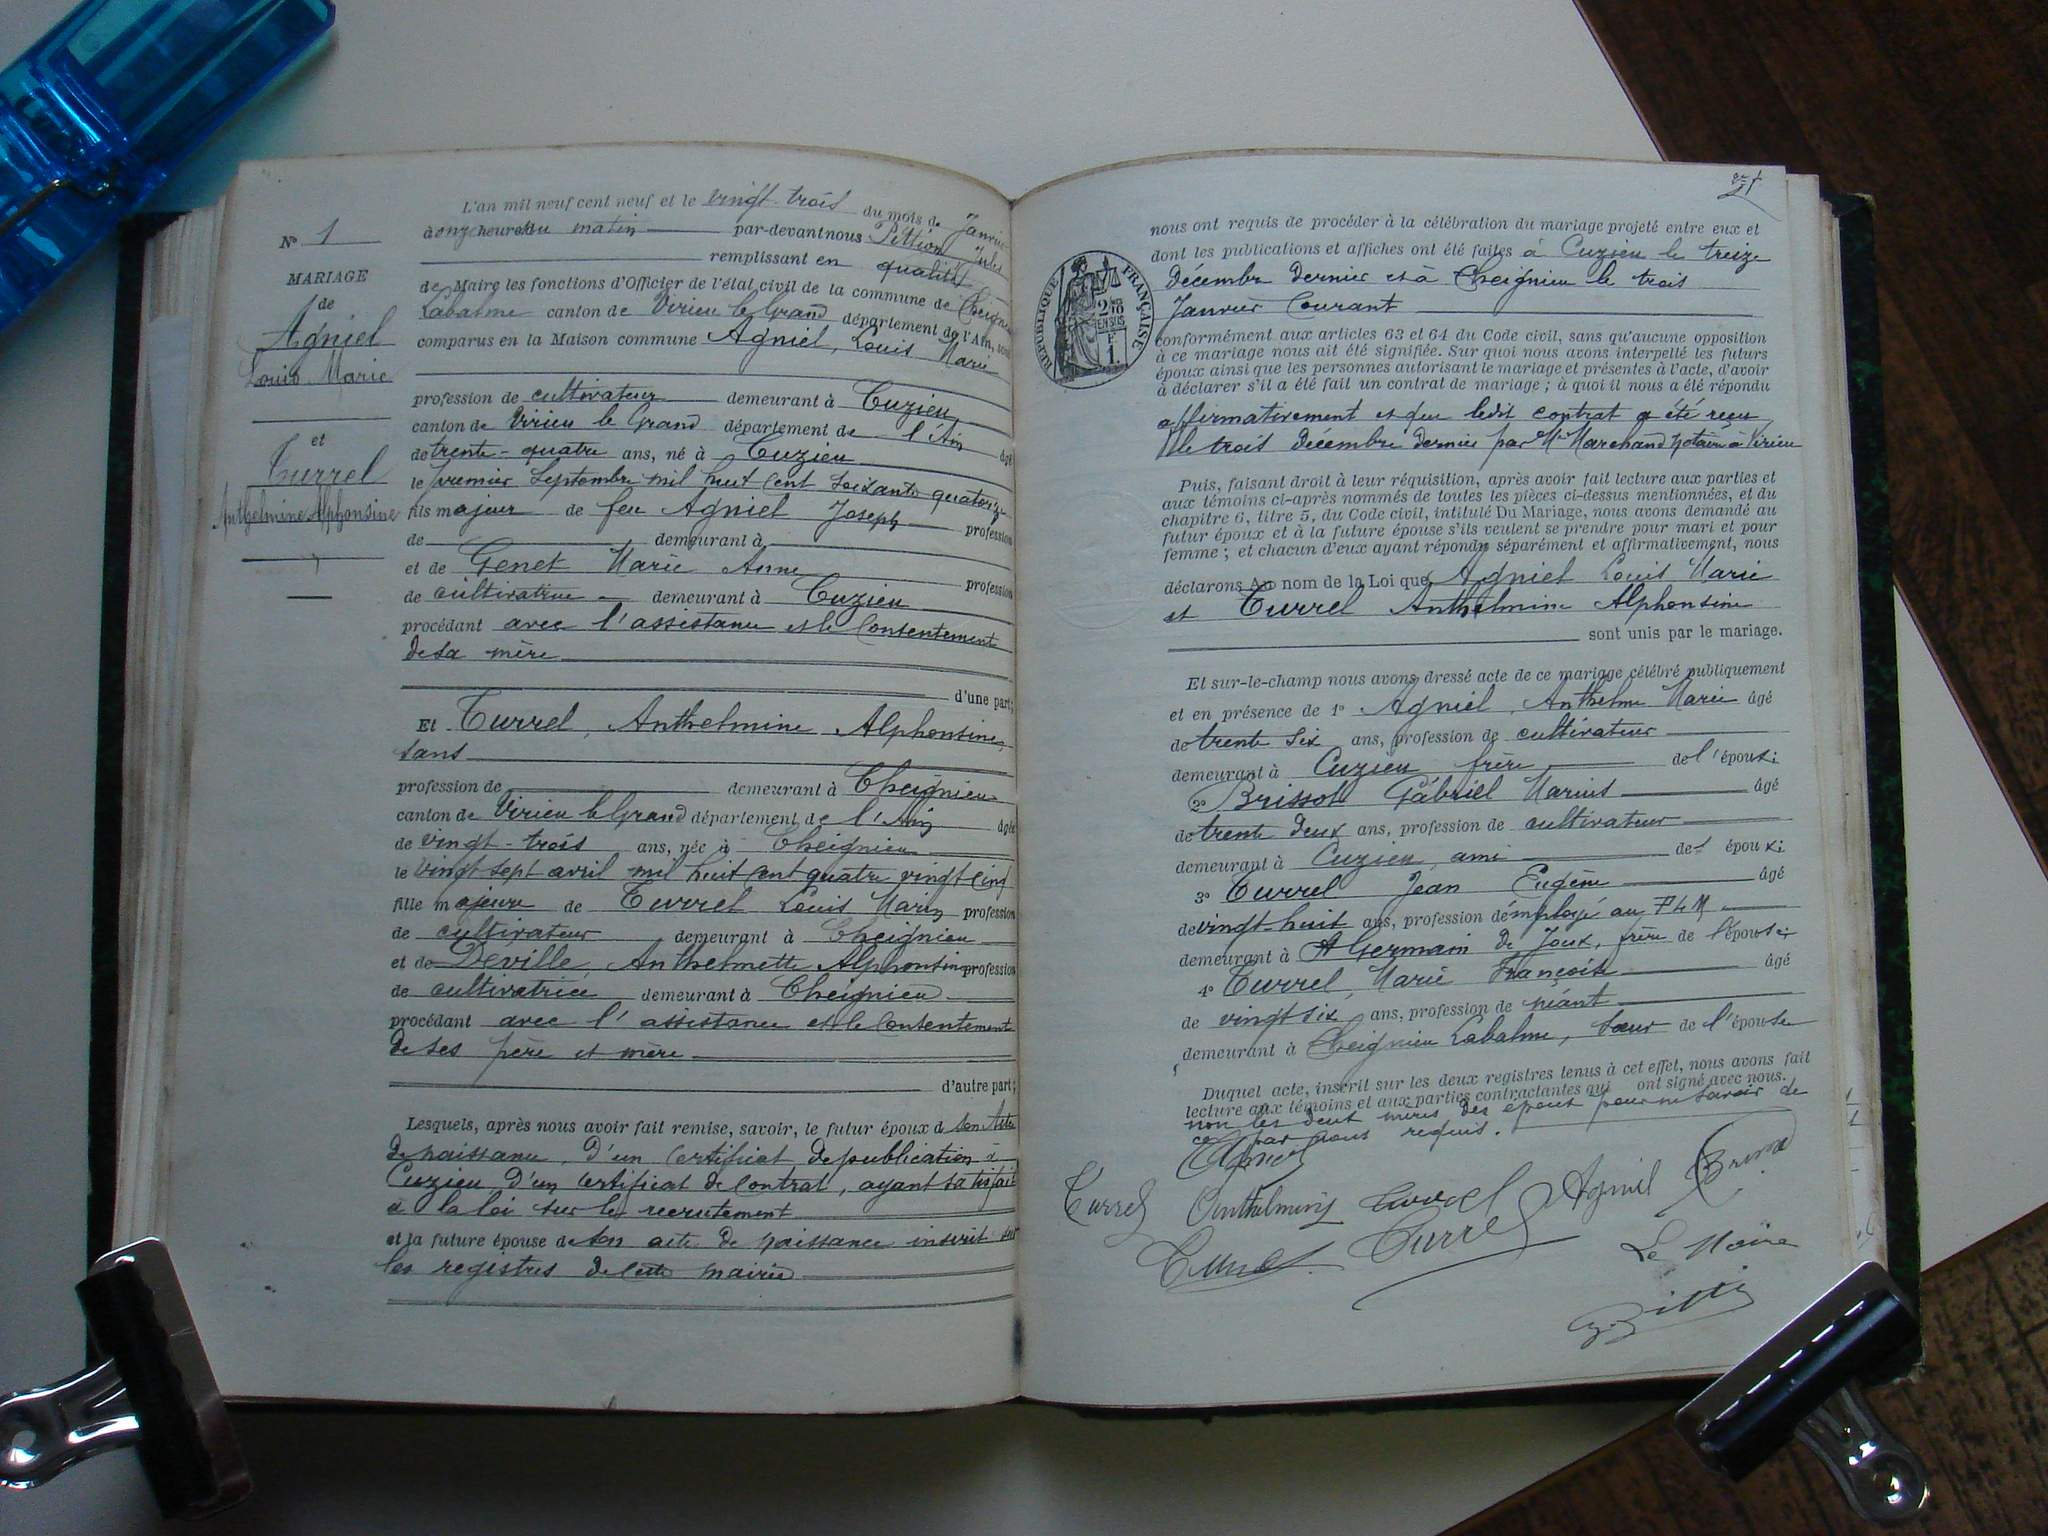 N° 1
MARIAGE
de
Agniel
Louis Marie
et
Turrel
Anthelmine Alphonsine
L'an mil neuf cent neuf et le vingt-trois du mois de Janvier
à onze heures du matin par-devant nous Pittion Jules
remplissant en qualité
de Maire les fonctions d'Officier de l'état civil de la commune de Cheignieu
Labalme canton de Virieu le Grand département de l'Ain, sont
comparus en la Maison commune Agniel, Louis Marie
profession de cultivateur demeurant à Cuzieu
canton de Virieu le Grand département de l'Ain âgé
de trente-quatre ans, né à Cuzieu
le premier Septembre mil huit cent soixante quatorze
fils majeur de feu Agniel Joseph profession
de demeurant à
et de Genet Marie Anne profession
de cultivatrice demeurant à Cuzieu
procédant avec l'assistance et le consentement
de sa mère
d'une part;
Et Turrel, Anthelmine Alphonsine,
sans
profession de demeurant à Cheignieu
canton de Virieu le Grand département de l'Ain âgée
de vingt-trois ans, née à Cheignieu
le vingt sept avril mil huit cent quatre vingt cinq
fille majeure de Turrel Louis Marin profession
de cultivateur demeurant à Cheignieu
et de Deville, Anthelmette Alphonsine profession
de cultivatrice demeurant à Cheignieu
procédant avec l'assistance et le consentement
de ses père et mère
d'autre part;
Lesquels, après nous avoir fait remise, savoir, le futur époux de son acte
de naissance, d'un certificat de publication à
Cuzieu, d'un certificat de contrat, ayant satisfait
à la loi sur le recrutement
et la future épouse de son acte de naissance inscrit sur
les registres de cette mairie
nous ont requis de procéder à la célébration du mariage projeté entre eux et
dont les publications et affiches ont été faites à Cuzieu le treize
Décembre dernier et à Cheignieu le trois
Janvier courant
RÉPUBLIQUE FRANÇAISE
conformément aux articles 63 et 64 du Code civil, sans qu'aucune opposition
à ce mariage nous ait été signifiée. Sur quoi nous avons interpellé les futurs
époux ainsi que les personnes autorisant le mariage et présentes à l'acte, d'avoir
à déclarer s'il a été fait un contrat de mariage ; à quoi il nous a été répondu
affirmativement et que ledit contrat a été reçu
le trois décembre dernier par Me Marchand notaire à Virieu
Puis, faisant droit à leur réquisition, après avoir fait lecture aux parties et
aux témoins ci-après nommés de toutes les pièces ci-dessus mentionnées, et du
chapitre 6, titre 5, du Code civil, intitulé Du Mariage, nous avons demandé au
futur époux et à la future épouse s'ils veulent se prendre pour mari et pour
femme ; et chacun d'eux ayant répondu séparément et affirmativement, nous
déclarons Au nom de la Loi que Agniel Louis Marie
et Turrel Anthelmine Alphonsine
sont unis par le mariage.
Et sur-le-champ nous avons dressé acte de ce mariage célébré publiquement
et en présence de 1° Agniel, Anthelme Marie âgé
de trente six ans, profession de cultivateur
demeurant à Cuzieu frère de l'époux
2° Brissot Gabriel Marius âgé
de trente deux ans, profession de cultivateur
demeurant à Cuzieu, ami de l'époux
3° Turrel Jean Eugène âgé
de vingt-huit ans, profession d'employé au PLM
demeurant à St Germain de Joux, frère de l'épouse
4° Turrel, Marie Françoise âgé
de vingt six ans, profession de néant
demeurant à Cheignieu Labalme, soeur de l'épouse
Duquel acte, inscrit sur les deux registres tenus à cet effet, nous avons fait
lecture aux témoins et aux parties contractantes qui ont signé avec nous.
non les deux mères des époux pour ne savoir de
ce par nous requis.
Agniel
Turrel Anthelmine Turrel Agniel
Turrel Turrel Le Maire